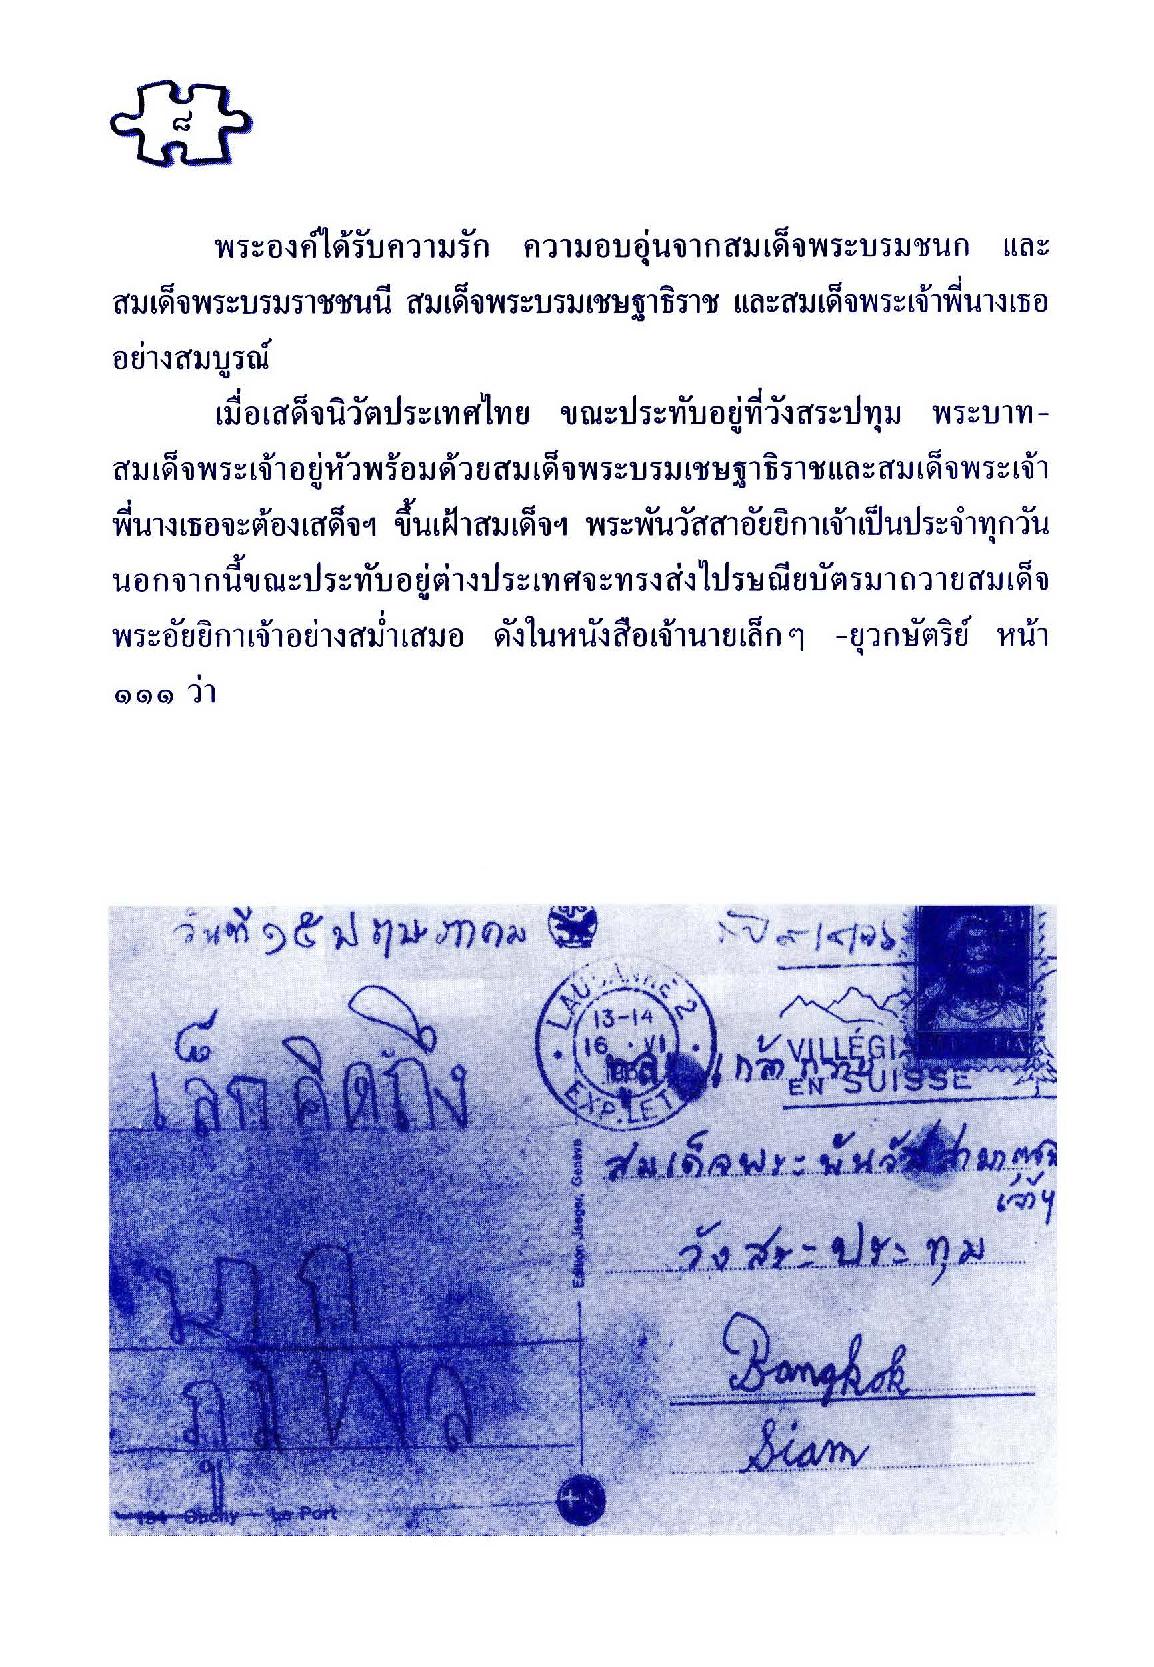 ๘
พระองค์ได้รับความรัก ความอบอุ่นจากสมเด็จพระบรมชนก และ
สมเด็จพระบรมราชชนนี สมเด็จพระบรมเชษฐาธิราช และสมเด็จพระเจ้าพี่นางเธอ
อย่างสมบูรณ์
เมื่อเสด็จนิวัตประเทศไทย ขณะประทับอยู่ที่วังสระปทุม พระบาท-
สมเด็จพระเจ้าอยู่หัวพร้อมด้วยสมเด็จพระบรมเชษฐาธิราชและสมเด็จพระเจ้า
พี่นางเธอจะต้องเสด็จฯ ขึ้นเฝ้าสมเด็จฯ พระพันวัสสาอัยยิกาเจ้าเป็นประจำทุกวัน
นอกจากนี้ขณะประทับอยู่ต่างประเทศจะทรงส่งไปรษณียบัตรมาถวายสมเด็จ
พระอัยยิกาเจ้าอย่างสม่ำเสมอ ดังในหนังสือเจ้านายเล็กๆ -ยุวกษัตริย์ หน้า
๑๑๑ ว่า
วันที่ ๑๕ พฤษภาคม
เล็กคิดถึง
มาก
ภูมิพล
LAUSANNE 2
13-14
16 VI
EXP. LET
VILLÉGI
EN SUISSE
สมเด็จพระพันวัสสา
เจ้าฯ
วังสระประทุม
Bangkok
Siam
Edition Jaeger, Genève
194 Ouchy - Le Port